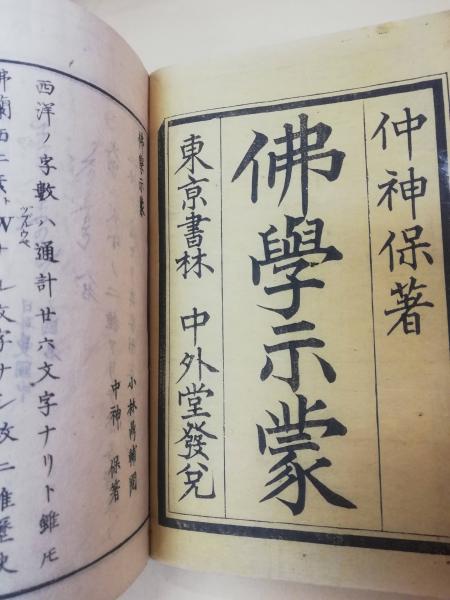 仲神保著
佛學示蒙
東京書林 中外堂發兌
佛學示蒙
小林鼎輔閲
中神 保著
西洋ノ字數ハ通計廿六文字ナリト雖𪜈
佛蘭西ニ於Wナル文字ナシ故ニ唯歴史